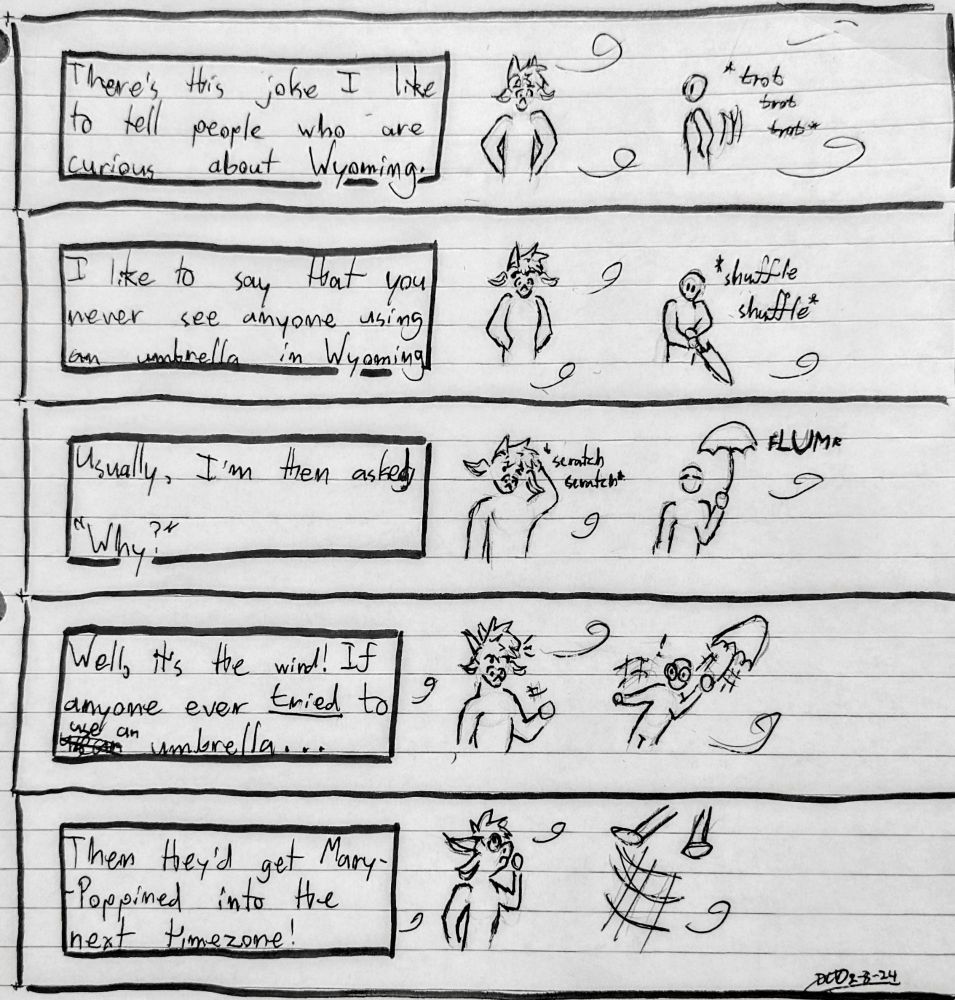 There's this joke I like
to tell people who are
curious about Wyoming.
*trot
trot
trot*
I like to say that you
never see anyone using
an umbrella in Wyoming
*shuffle
shuffle*
Usually, I'm then asked
"Why?"
*scratch
scratch*
FLUMP
Well, it's the wind! If
anyone ever tried to
use an
umbrella...
!
Then they'd get Mary-
-Poppined into the
next timezone!